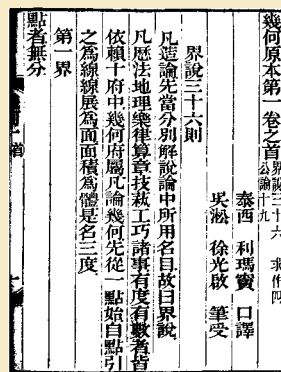 幾何原本第一卷之首 界說三十六 求作四 公論十九
泰西 利瑪竇 口譯
吳淞 徐光啟 筆受
界說三十六則
凡造論先當分別解說論中所用名目故曰界說
凡厯法地理樂律算章技藝工巧諸事有度有數者皆
依賴十府中幾何府屬凡論幾何先從一點始自點引
之為線線展為面面積為體是名三度
第一界
點者無分
首